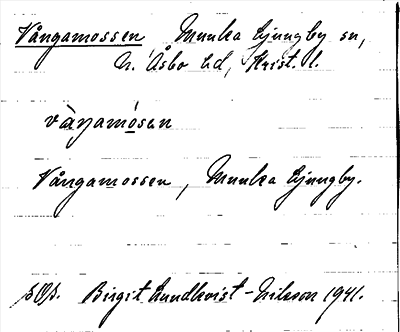 Vångamossen Munka Ljungby sn,
N. Åsbo hd, Krist. l.
vàŋamósən
Vångamossen, Munka Ljungby.
Birgit Lundkvist-Nilsson 1941.